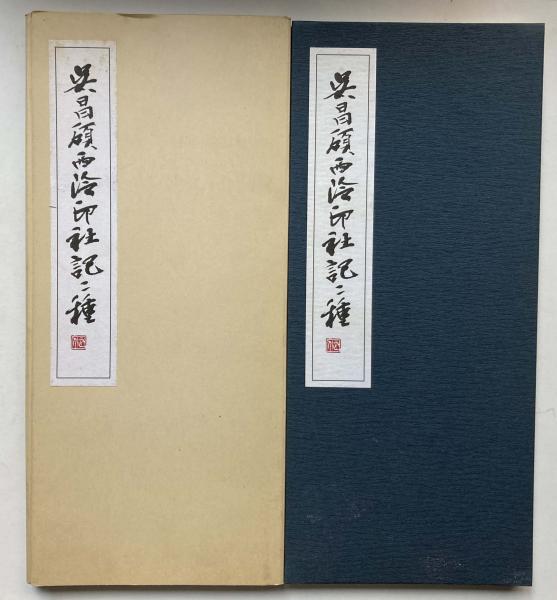 吳昌碩西泠印社記二種
吳昌碩西泠印社記二種